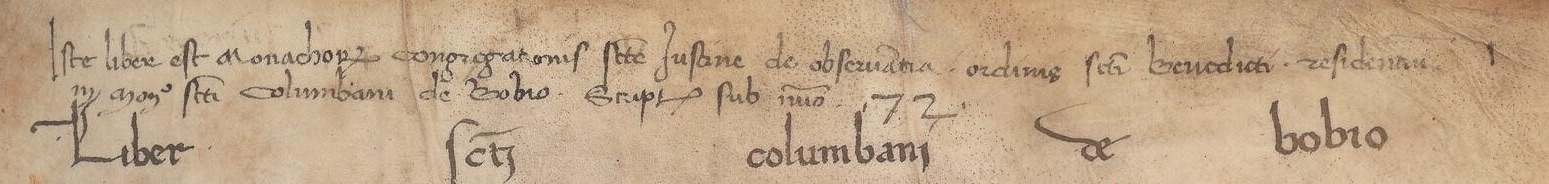 Iste liber est monachoꝝ congregationis scte Iustine de observantia · ordinis scti benedicti · residentiu
in mon° scti Columbani de Bobio · Script sub nuo · 172 ·
Liber scti columbani de bobio